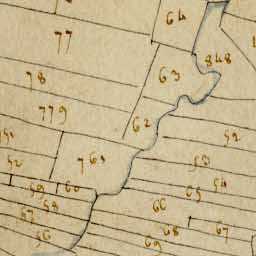 64
77
848
63
78
779
62
52
52
763
53
54
59
60
55
58
66
57
67
56
68
69